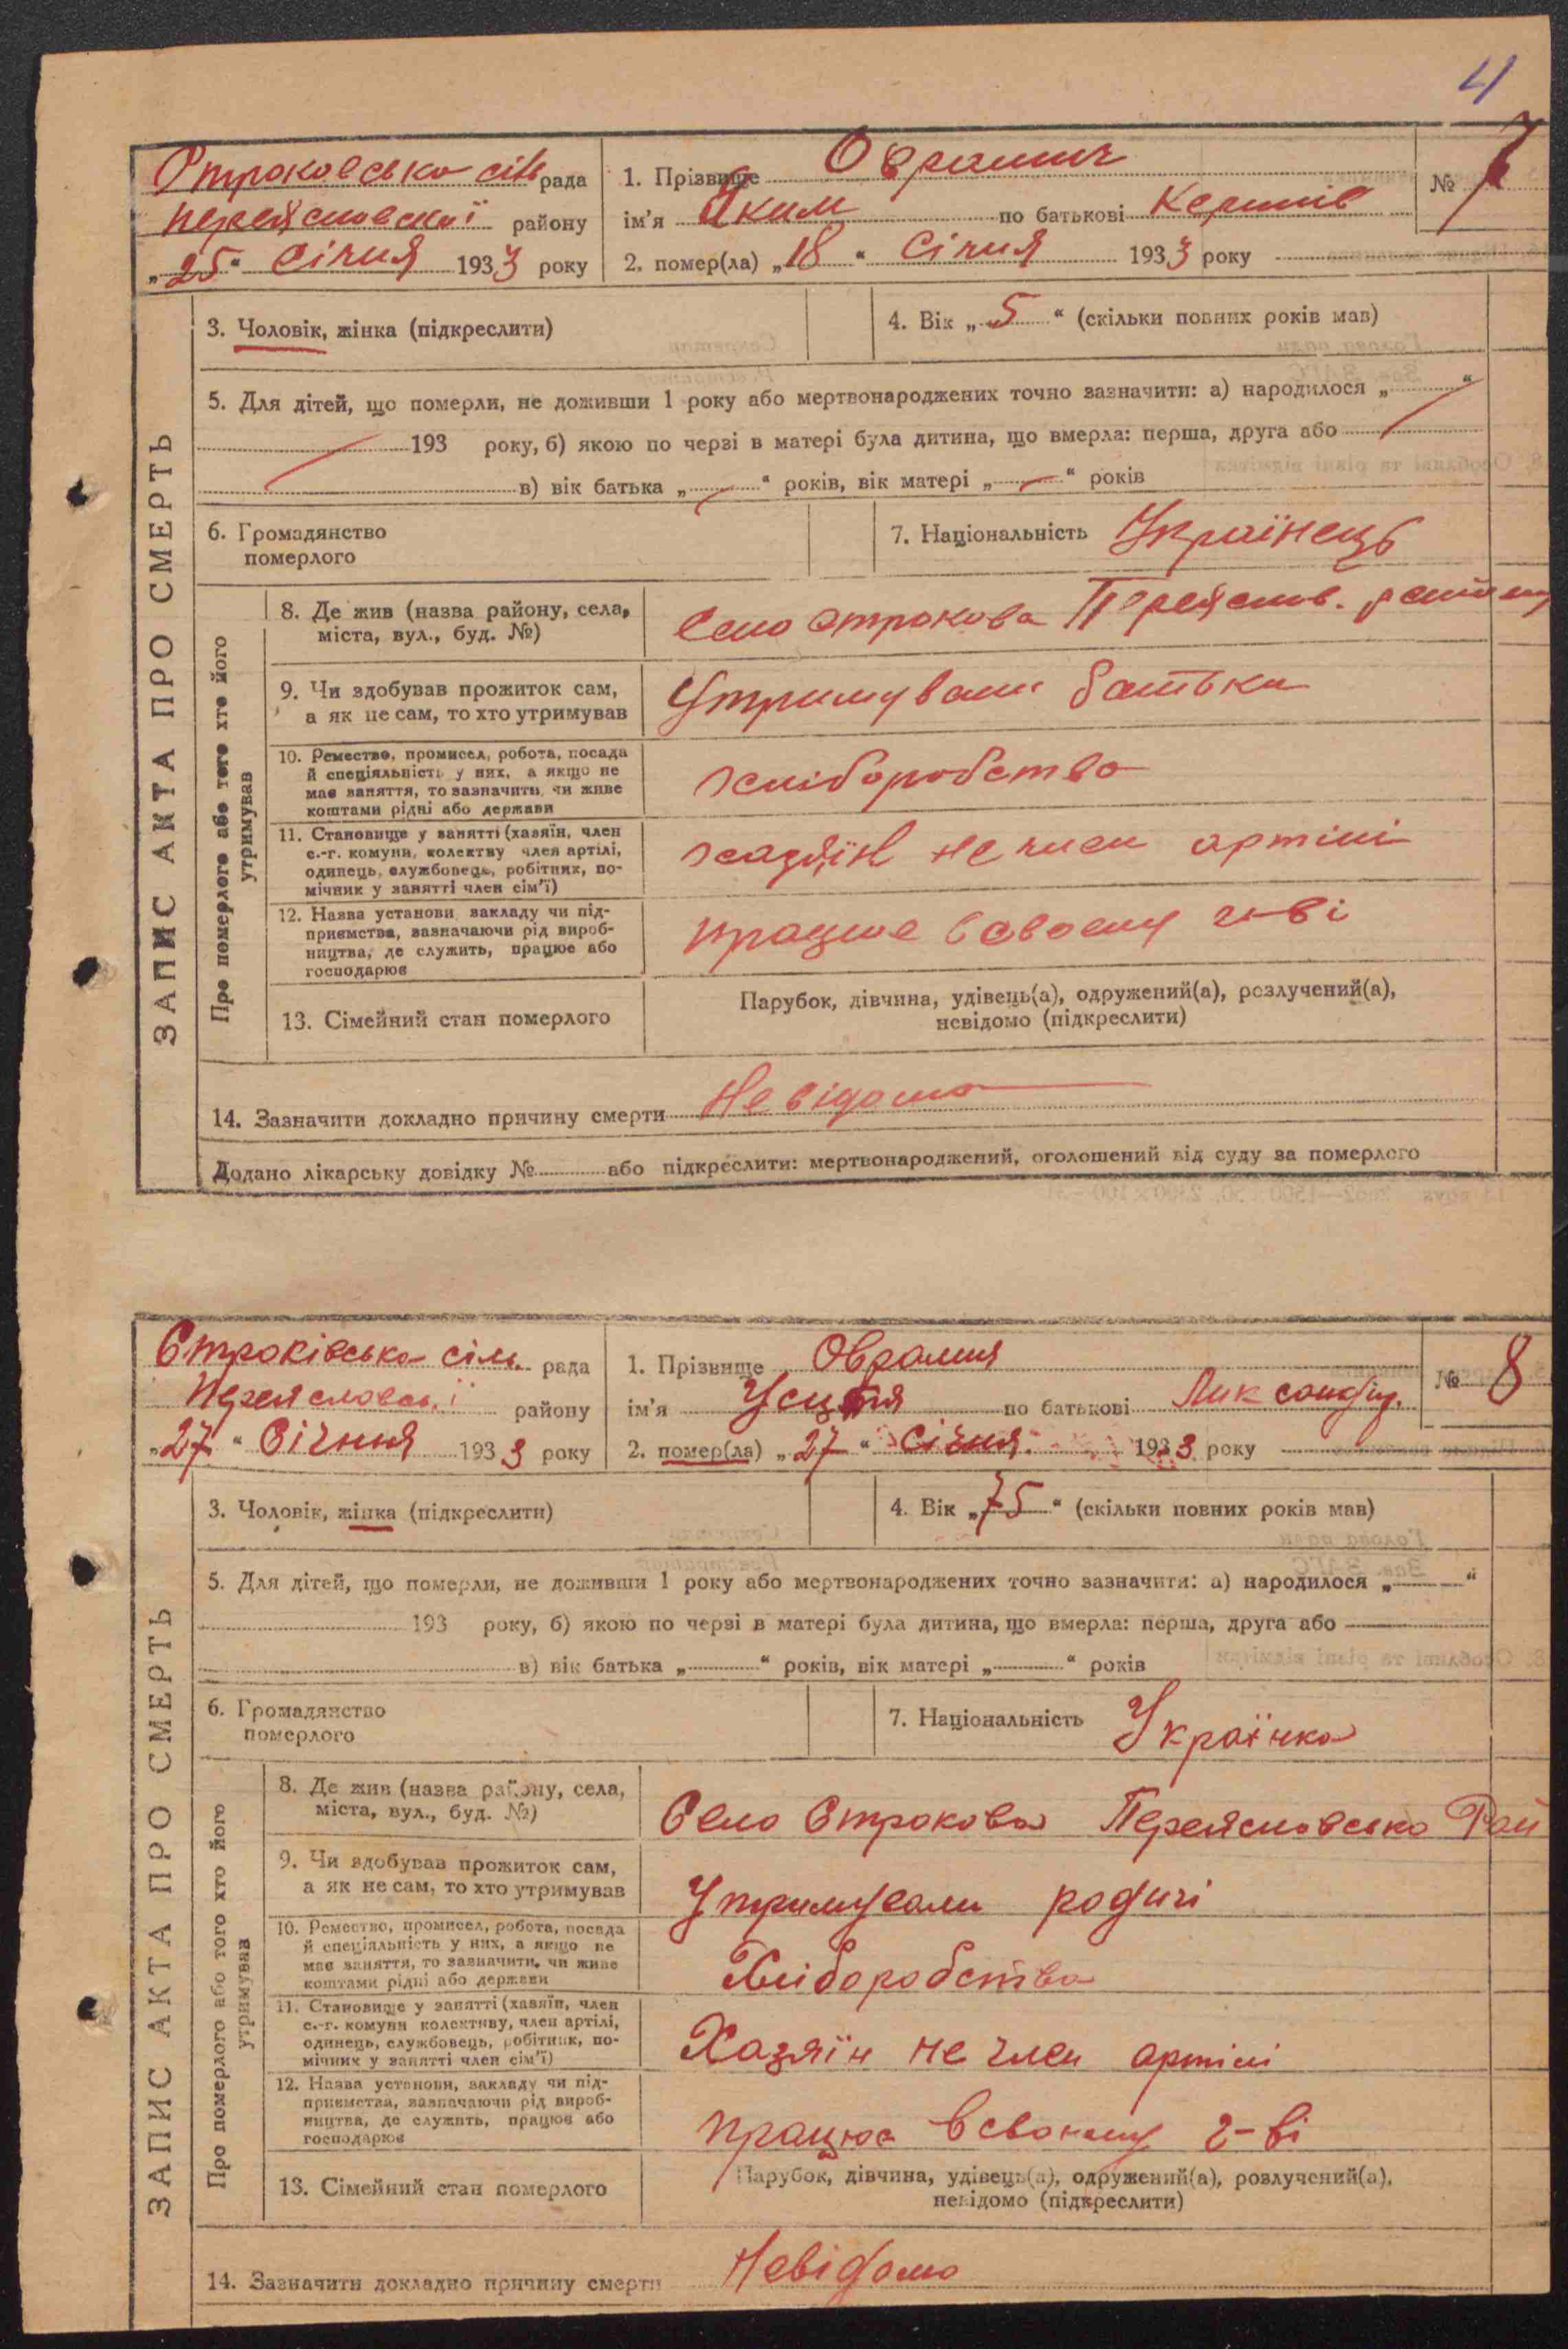 4
Строковсько сіль рада
Переясловської району
„25“ Січня 1933 року
1. Прізвище Оврамич
ім’я Яким по батькові
2. помер(ла) „18“ Січня 1933 року
№ 7
ЗАПИС АКТА ПРО СМЕРТЬ
3. Чоловік, жінка (підкреслити)
4. Вік „5“ (скільки повних років мав)
5. Для дітей, що померли, не доживши 1 року або мертвонароджених точно зазначити: а) народилося „ “
193 року, б) якою по черзі в матері була дитина, що вмерла: перша, друга або
в) вік батька „ “ років, вік матері „ “ років
6. Громадянство
померлого
7. Національність Українець
Про померлого або того хто його
утримував
8. Де жив (назва району, села,
міста, вул., буд. №)
Село Строкова Переяслов.
9. Чи здобував прожиток сам,
а як не сам, то хто утримував
Утримували батьки
10. Ремество, промисел, робота, посада
й спеціяльність у них, а якщо не
має заняття, то зазначити, чи живе
коштами рідні або держави
хліборобство
11. Становище у занятті (хазяїн, член
с.-г. комуни, колективу член артілі,
одинець, службовець, робітник, по-
мічник у занятті член сім’ї)
хазяїн не член артілі
12. Назва установи, закладу чи під-
приємства, зазначаючи рід вироб-
ництва, де служить, працює або
господарює
працює в своєму г-ві
13. Сімейний стан померлого
Парубок, дівчина, удівець(а), одружений(а), розлучений(а),
невідомо (підкреслити)
14. Зазначити докладно причину смерти Невідомо
Додано лікарську довідку № або підкреслити: мертвонароджений, оголошений від суду за померлого
Строківсько сіль. рада
Переясловсь.ї району
„27“ Січння 1933 року
1. Прізвище Оврамич
ім’я Усцтя по батькові Ликсандр.
2. помер(ла) „27“ Січня. 1933 року
№ 8
ЗАПИС АКТА ПРО СМЕРТЬ
3. Чоловік, жінка (підкреслити)
4. Вік „75“ (скільки повних років мав)
5. Для дітей, що померли, не доживши 1 року або мертвонароджених точно зазначити: а) народилося „ “
193 року, б) якою по черзі в матері була дитина, що вмерла: перша, друга або
в) вік батька „ “ років, вік матері „ “ років
6. Громадянство
померлого
7. Національність Українка
Про померлого або того хто його
утримував
8. Де жив (назва району, села,
міста, вул., буд. №)
Село Строкова Переясловсько Рай
9. Чи здобував прожиток сам,
а як не сам, то хто утримував
Утримували родичі
10. Ремество, промисел, робота, посада
й спеціяльність у них, а якщо не
має заняття, то зазначити, чи живе
коштами рідні або держави
Хліборобства
11. Становище у занятті (хазяїн, член
с.-г. комуни колективу, член артілі,
одинець, службовець, робітник, по-
мічник у занятті член сім’ї)
Хазяїн не член артілі
12. Назва установи, закладу чи під-
приємства, зазначаючи рід вироб-
ництва, де служить, працює або
господарює
працює в свойому г-ві
13. Сімейний стан померлого
Парубок, дівчина, удівець(а), одружений(а), розлучений(а),
невідомо (підкреслити)
14. Зазначити докладно причину смерти Невідомо